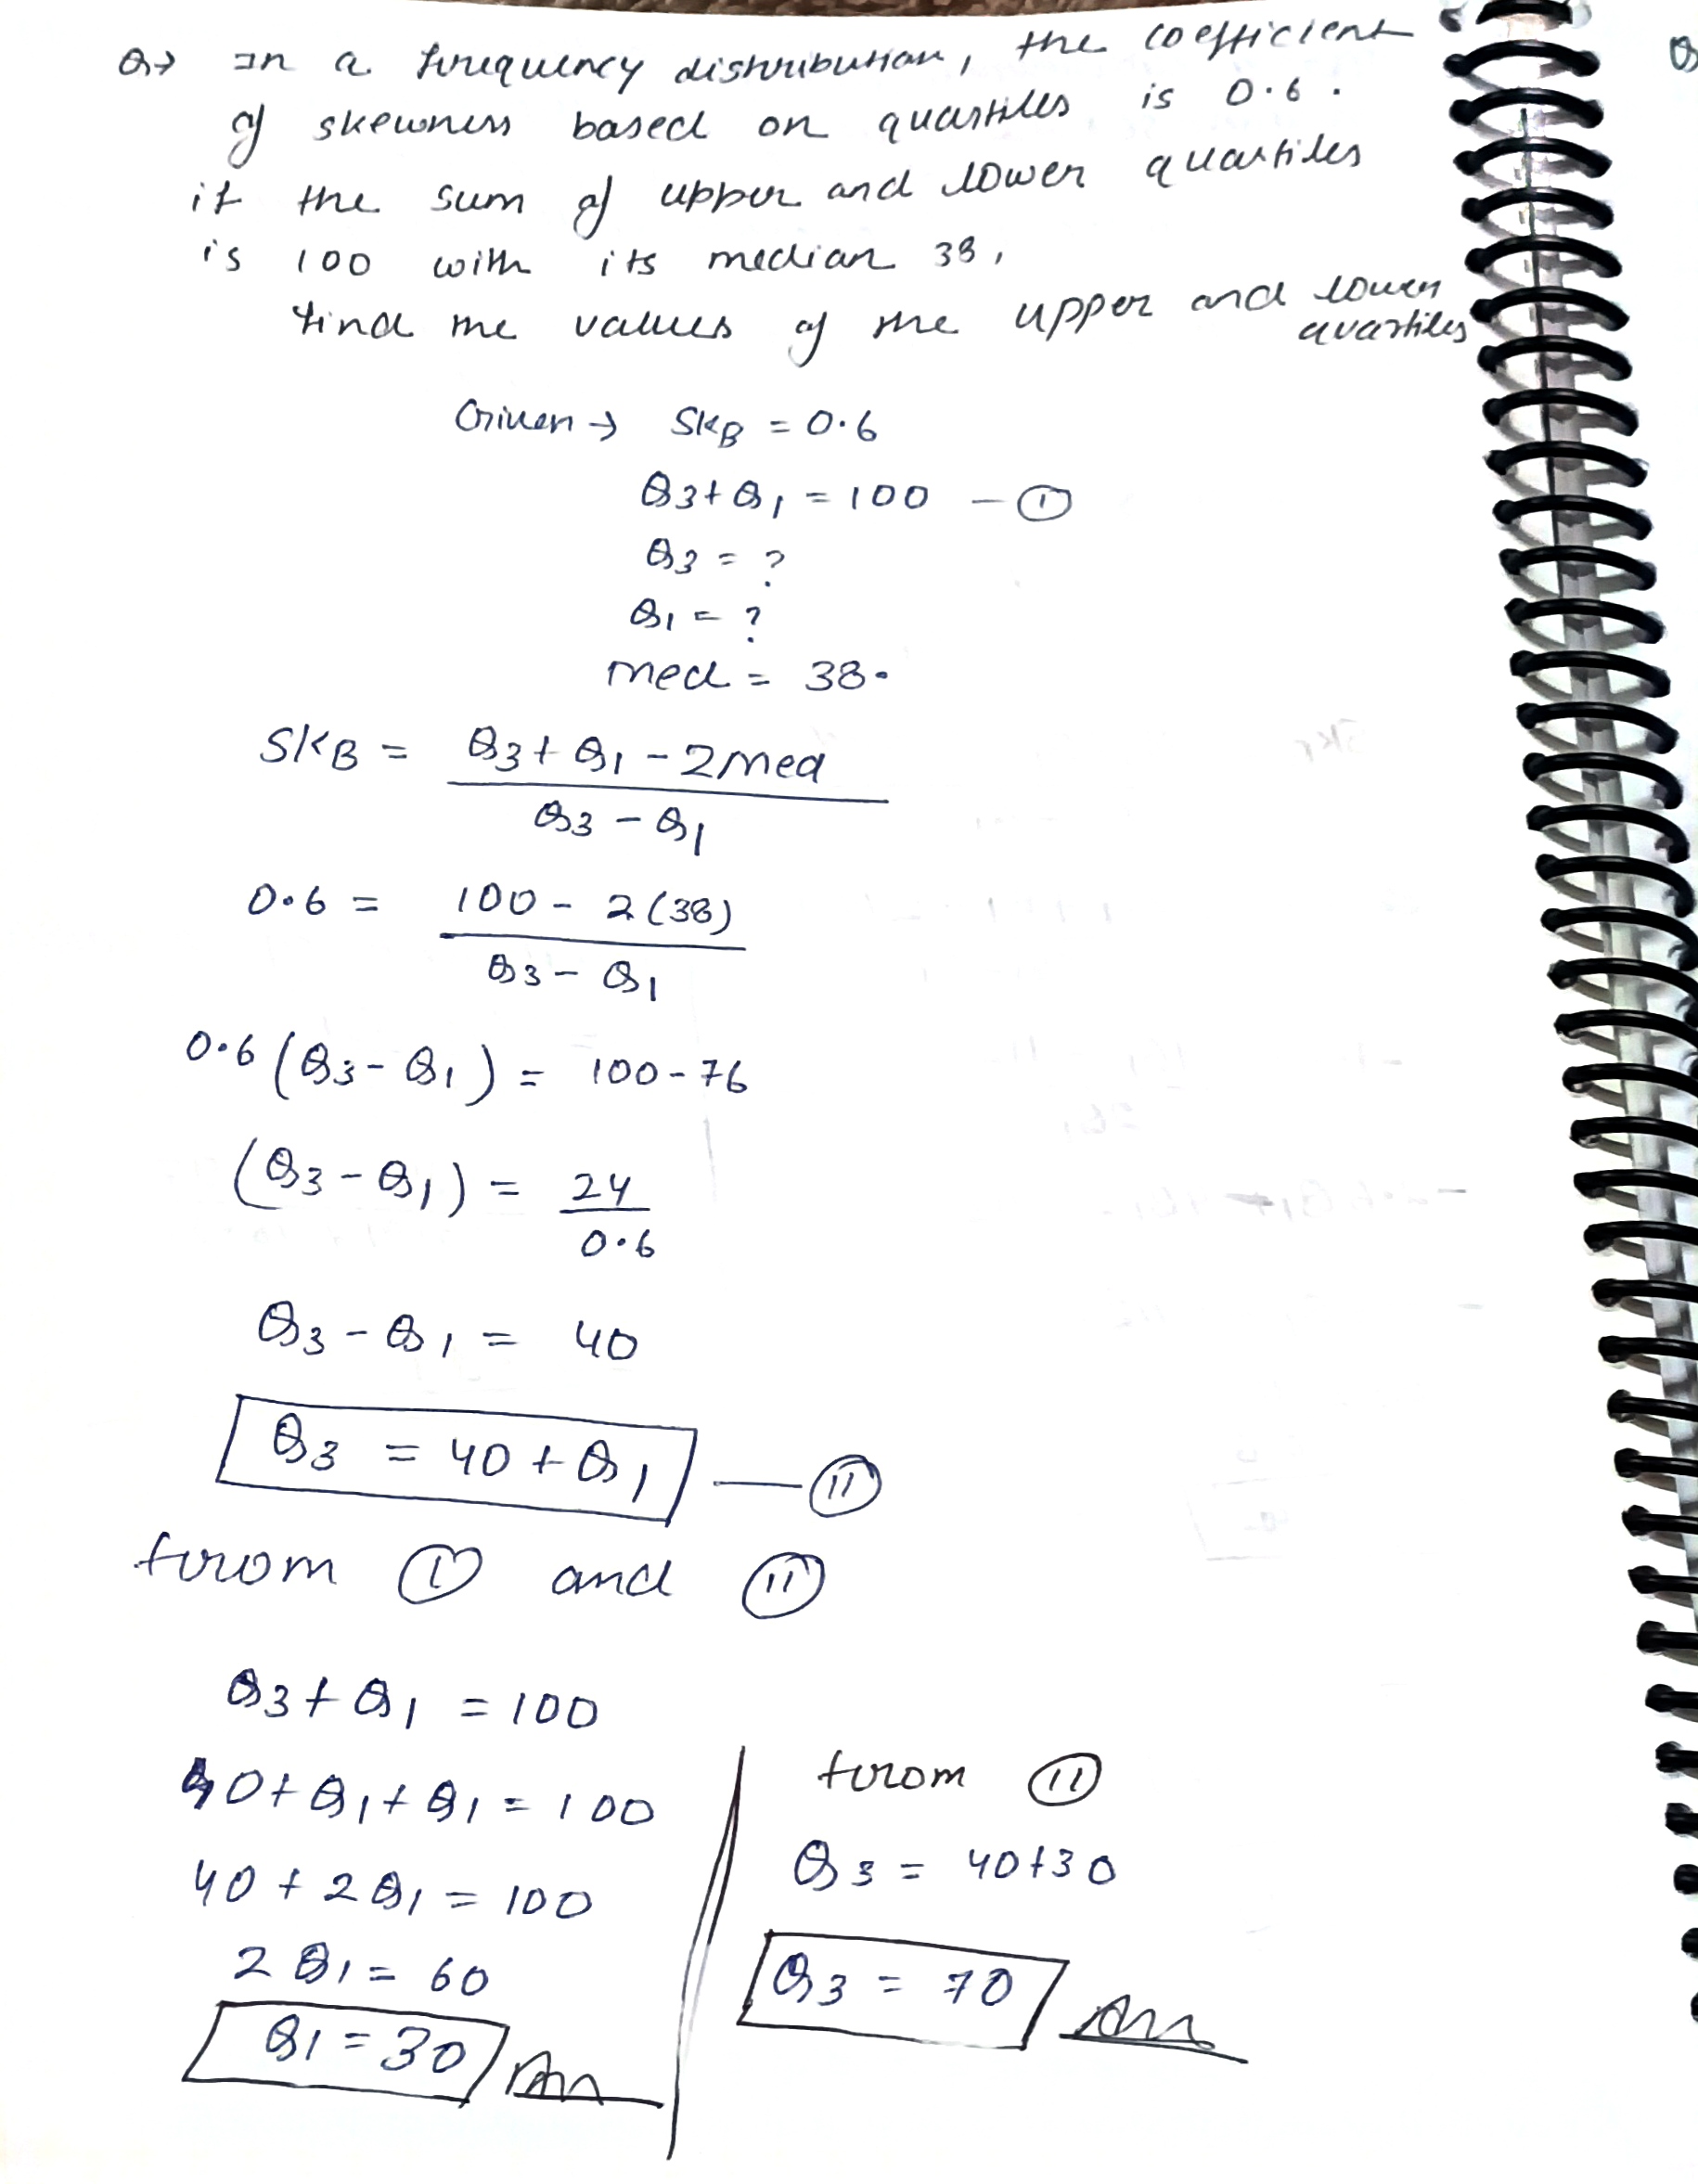 Q→ In a frequency distribution, the coefficient
of skewness based on quartiles is 0.6.
if the sum of upper and lower quartiles
is 100 with its median 38,
find the values of the upper and lower
quartiles
Given → SKB = 0.6
Q3 + Q1 = 100 — (I)
Q3 = ?
Q1 = ?
med = 38.
SKB = Q3 + Q1 - 2med
Q3 - Q1
0.6 = 100 - 2(38)
Q3 - Q1
0.6 (Q3 - Q1) = 100 - 76
(Q3 - Q1) = 24
0.6
Q3 - Q1 = 40
Q3 = 40 + Q1 — (II)
from (I) and (II)
Q3 + Q1 = 100
40 + Q1 + Q1 = 100
40 + 2Q1 = 100
2Q1 = 60
Q1 = 30 Ans
from (II)
Q3 = 40+30
Q3 = 70 Ans